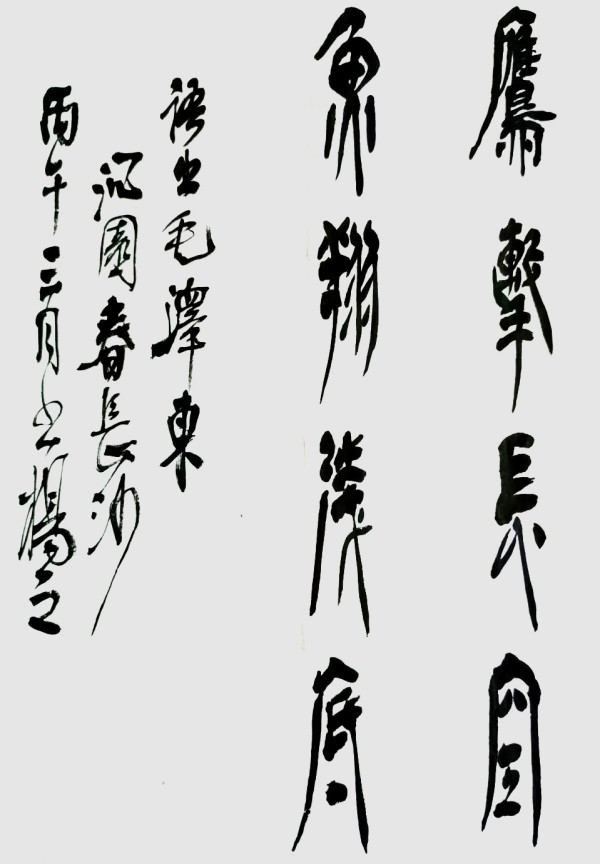 鷹擊長空
魚翔淺底
語出毛澤東
沁園春長沙
丙午二月書楊之